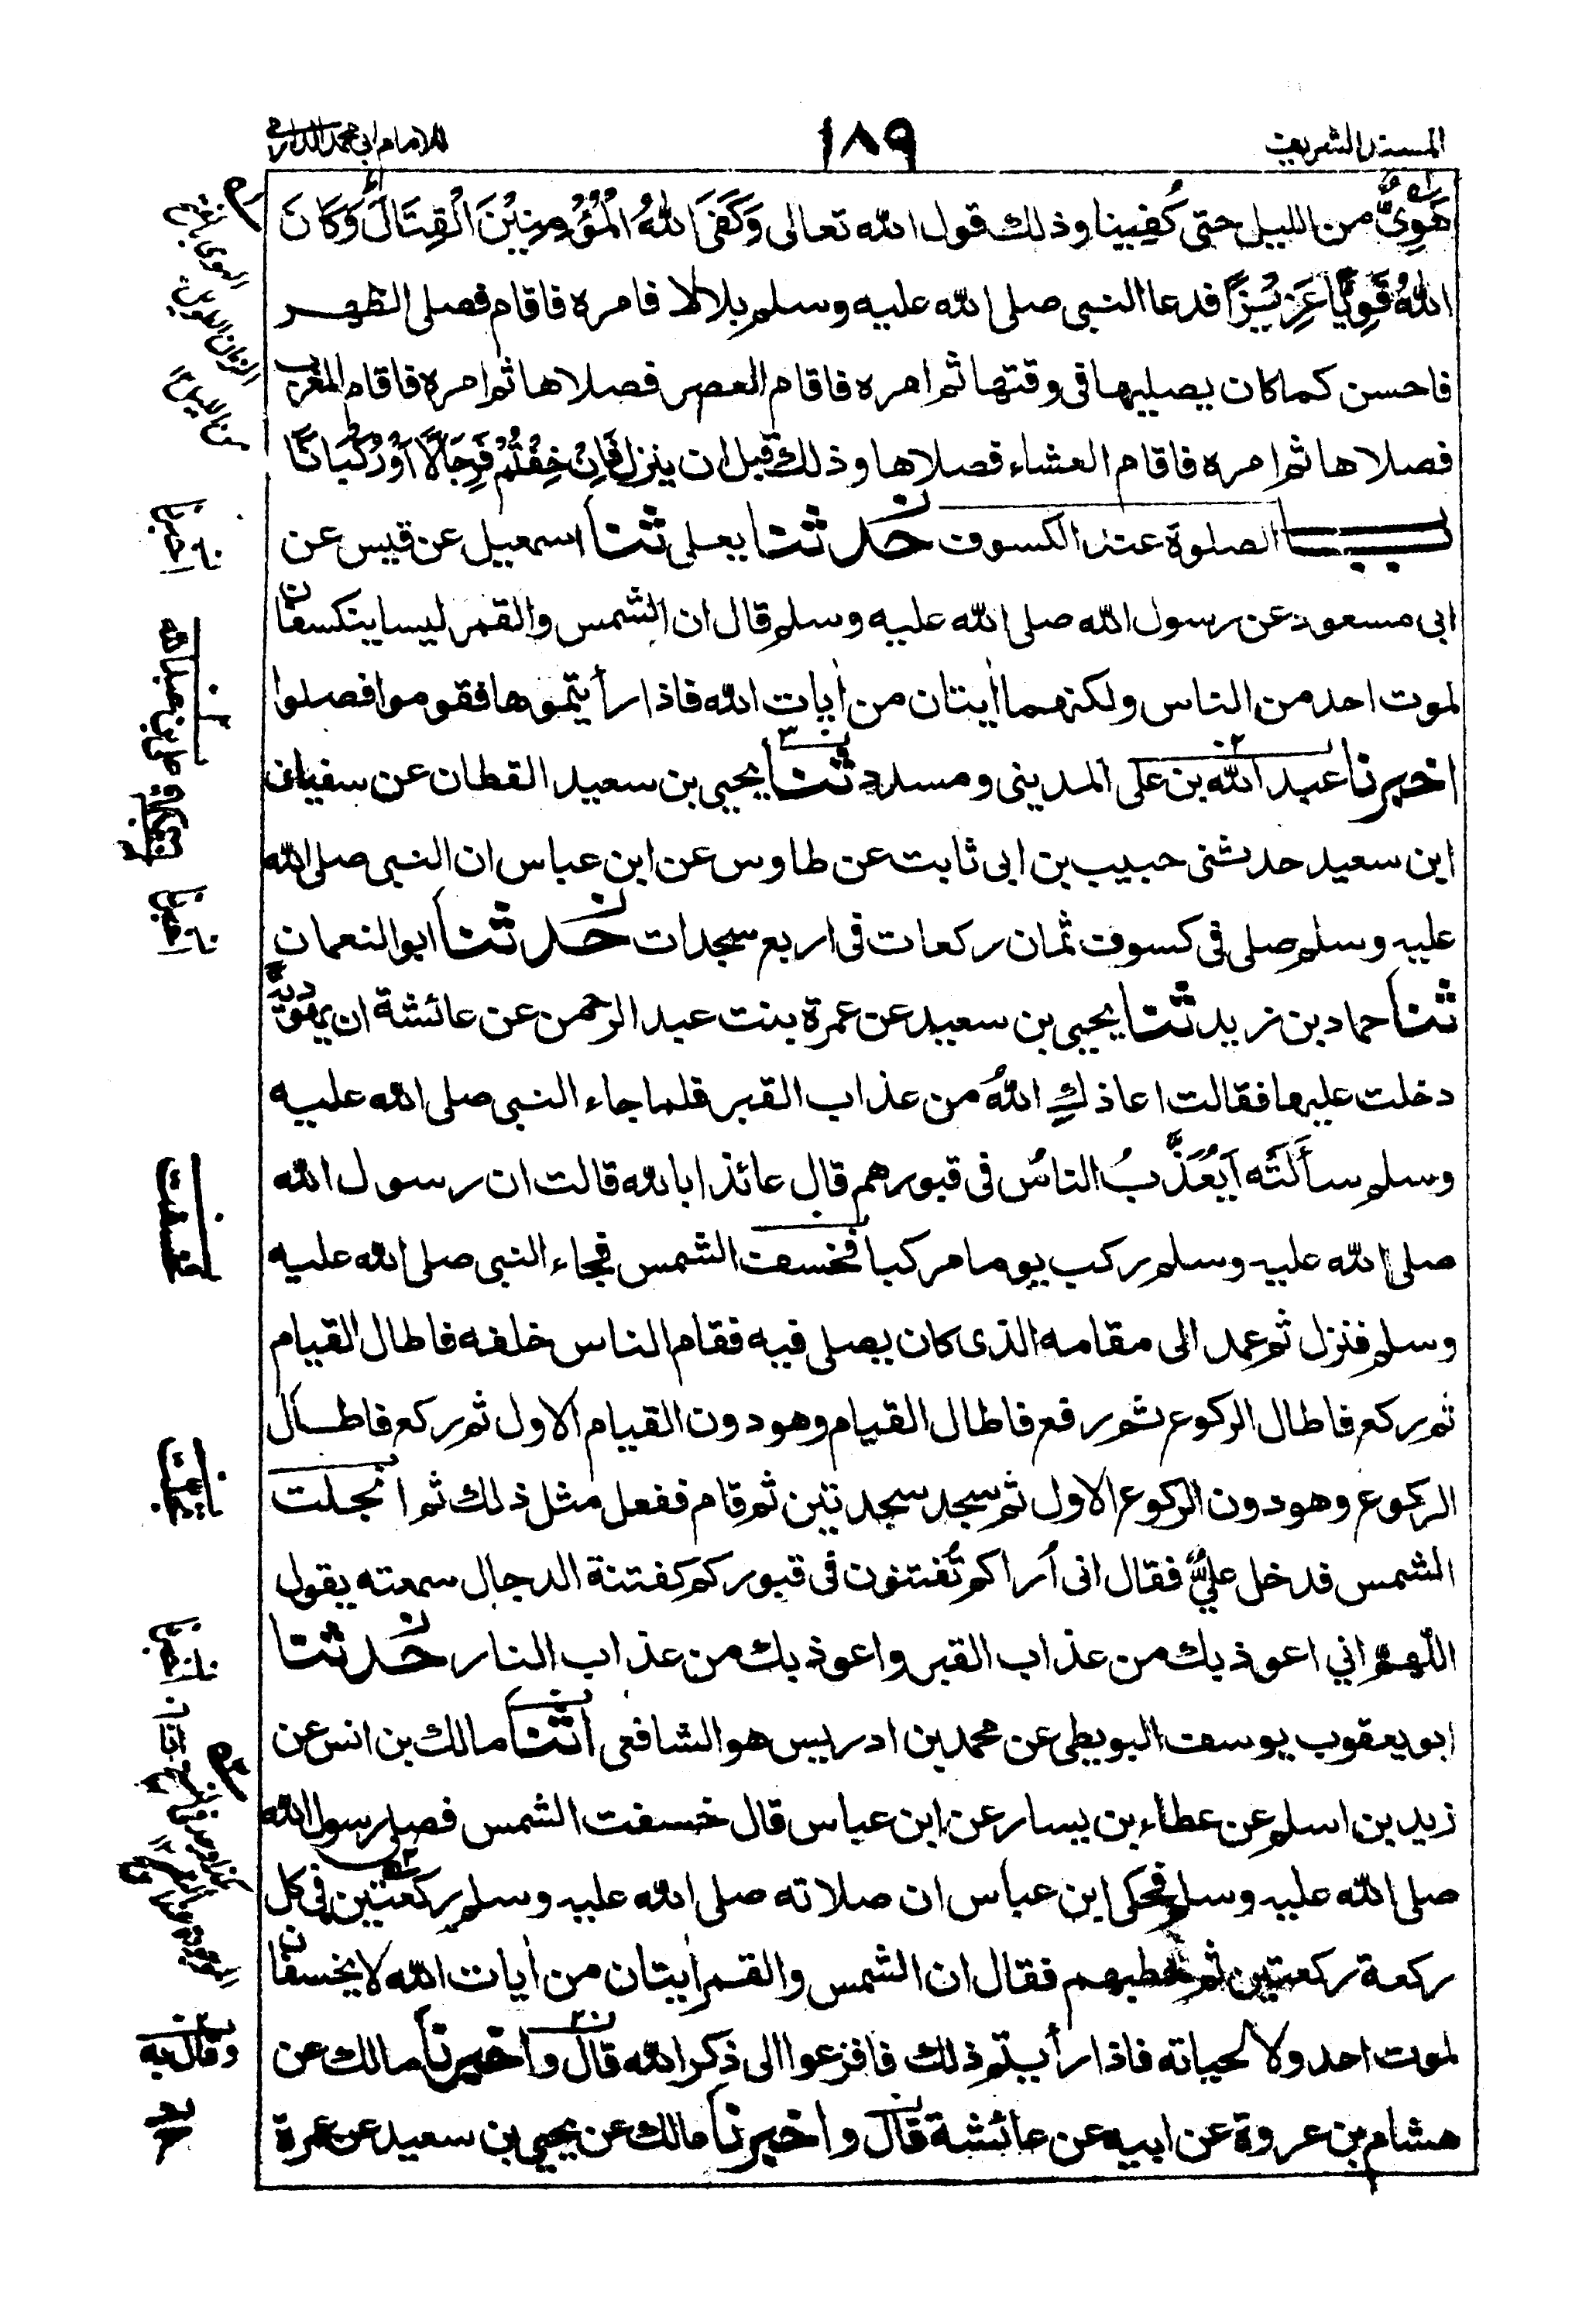 المسند الشريف ١٨٩ للامام ابى محمد الدارمى
هَوِىٌّ من الليل حتى كُفِينا وذلك قول الله تعالى وَكَفَى اللّٰهُ الْمُؤْمِنِيْنَ الْقِتَالَ وَكَانَ
اللّٰهُ قَوِيًّا عَزِيْزًا فدعا النبى صلى الله عليه وسلم بلالا فامره فاقام فصلى الظهر
فاحسن كما كان يصليها فى وقتها ثم امره فاقام العصر فصلاها ثم امره فاقام المغرب
فصلاها ثم امره فاقام العشاء فصلاها وذلك قبل ان ينزل فَاِنْ خِفْتُمْ فَرِجَالًا اَوْ رُكْبَانًا
باب الصلوة عند الكسوف حدثنا يعلى ثنا اسمعيل عن قيس عن
ابى مسعود عن رسول الله صلى الله عليه وسلم قال ان الشمس والقمر ليسا ينكسفان
لموت احد من الناس ولكنهما اٰيتان من اٰيات الله فاذا رأيتموها فقوموا فصلوا
اخبرنا عبد الله بن على المدينى ومسدد ثنا يحيى بن سعيد القطان عن سفيان
ابن سعيد حدثنى حبيب بن ابى ثابت عن طاوس عن ابن عباس ان النبى صلى الله
عليه وسلم صلى فى كسوف ثمان ركعات فى اربع سجدات حدثنا ابو النعمان
ثنا حماد بن زيد ثنا يحيى بن سعيد عن عمرة بنت عبد الرحمن عن عائشة ان يهودية
دخلت عليها فقالت اعاذكِ اللهُ من عذاب القبر فلما جاء النبى صلى الله عليه
وسلم سأَلَتْه اَيُعَذَّبُ الناسُ فى قبورهم قال عائذا بالله قالت ان رسول الله
صلى الله عليه وسلم ركب يوما مركبا فخسفت الشمس فجاء النبى صلى الله عليه
وسلم فنزل ثم عمد الى مقامه الذى كان يصلى فيه فقام الناس خلفه فاطال القيام
ثم ركع فاطال الركوع ثم رفع فاطال القيام وهو دون القيام الاول ثم ركع فاطال
الركوع وهو دون الركوع الاول ثم سجد سجدتين ثم قام ففعل مثل ذلك ثم انجلت
الشمس فدخل علىَّ فقال انى اُراكم تُفتنون فى قبوركم كفتنة الدجال سمعته يقول
اللّٰهم اني اعوذ بك من عذاب القبر واعوذ بك من عذاب النار حدثنا
ابو يعقوب يوسف البويطى عن محمد بن ادريس هو الشافعى انثنا مالك بن انس عن
زيد بن اسلم عن عطاء بن يسار عن ابن عباس قال خسفت الشمس فصلى رسول الله
صلى الله عليه وسلم فحكى ابن عباس ان صلاته صلى الله عليه وسلم ركعتين فى كل
ركعة ركعتين ثم خطبهم فقال ان الشمس والقمر اٰيتان من اٰيات الله لا يخسفان
لموت احد ولا لحياته فاذا رأيتم ذلك فافزعوا الى ذكر الله قال واخبرنا مالك عن
هشام بن عروة عن ابيه عن عائشة قال واخبرنا مالك عن يحيى بن سعيد عن عمرة
نـ اخبرنا
نـ اخبرنا
نـ اخبرنا
وقال به